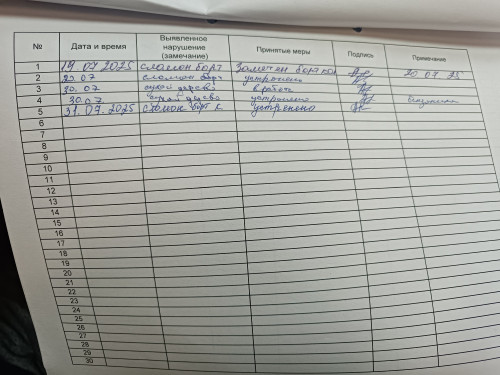 № Дата и время Выявленное нарушение (замечание) Принятые меры Подпись Примечание
1 19 07 2025 сломон борт Замечен борткой 20.07.25
2 20.07 сломон борт устронено
3 30.07 сухой дерево в работе
4 30.07 сухой дерево устронено
5 31.07.2025 сломон борт устренено
6
7
8
9
10
11
12
13
14
15
16
17
18
19
20
21
22
23
24
25
26
27
28
29
30